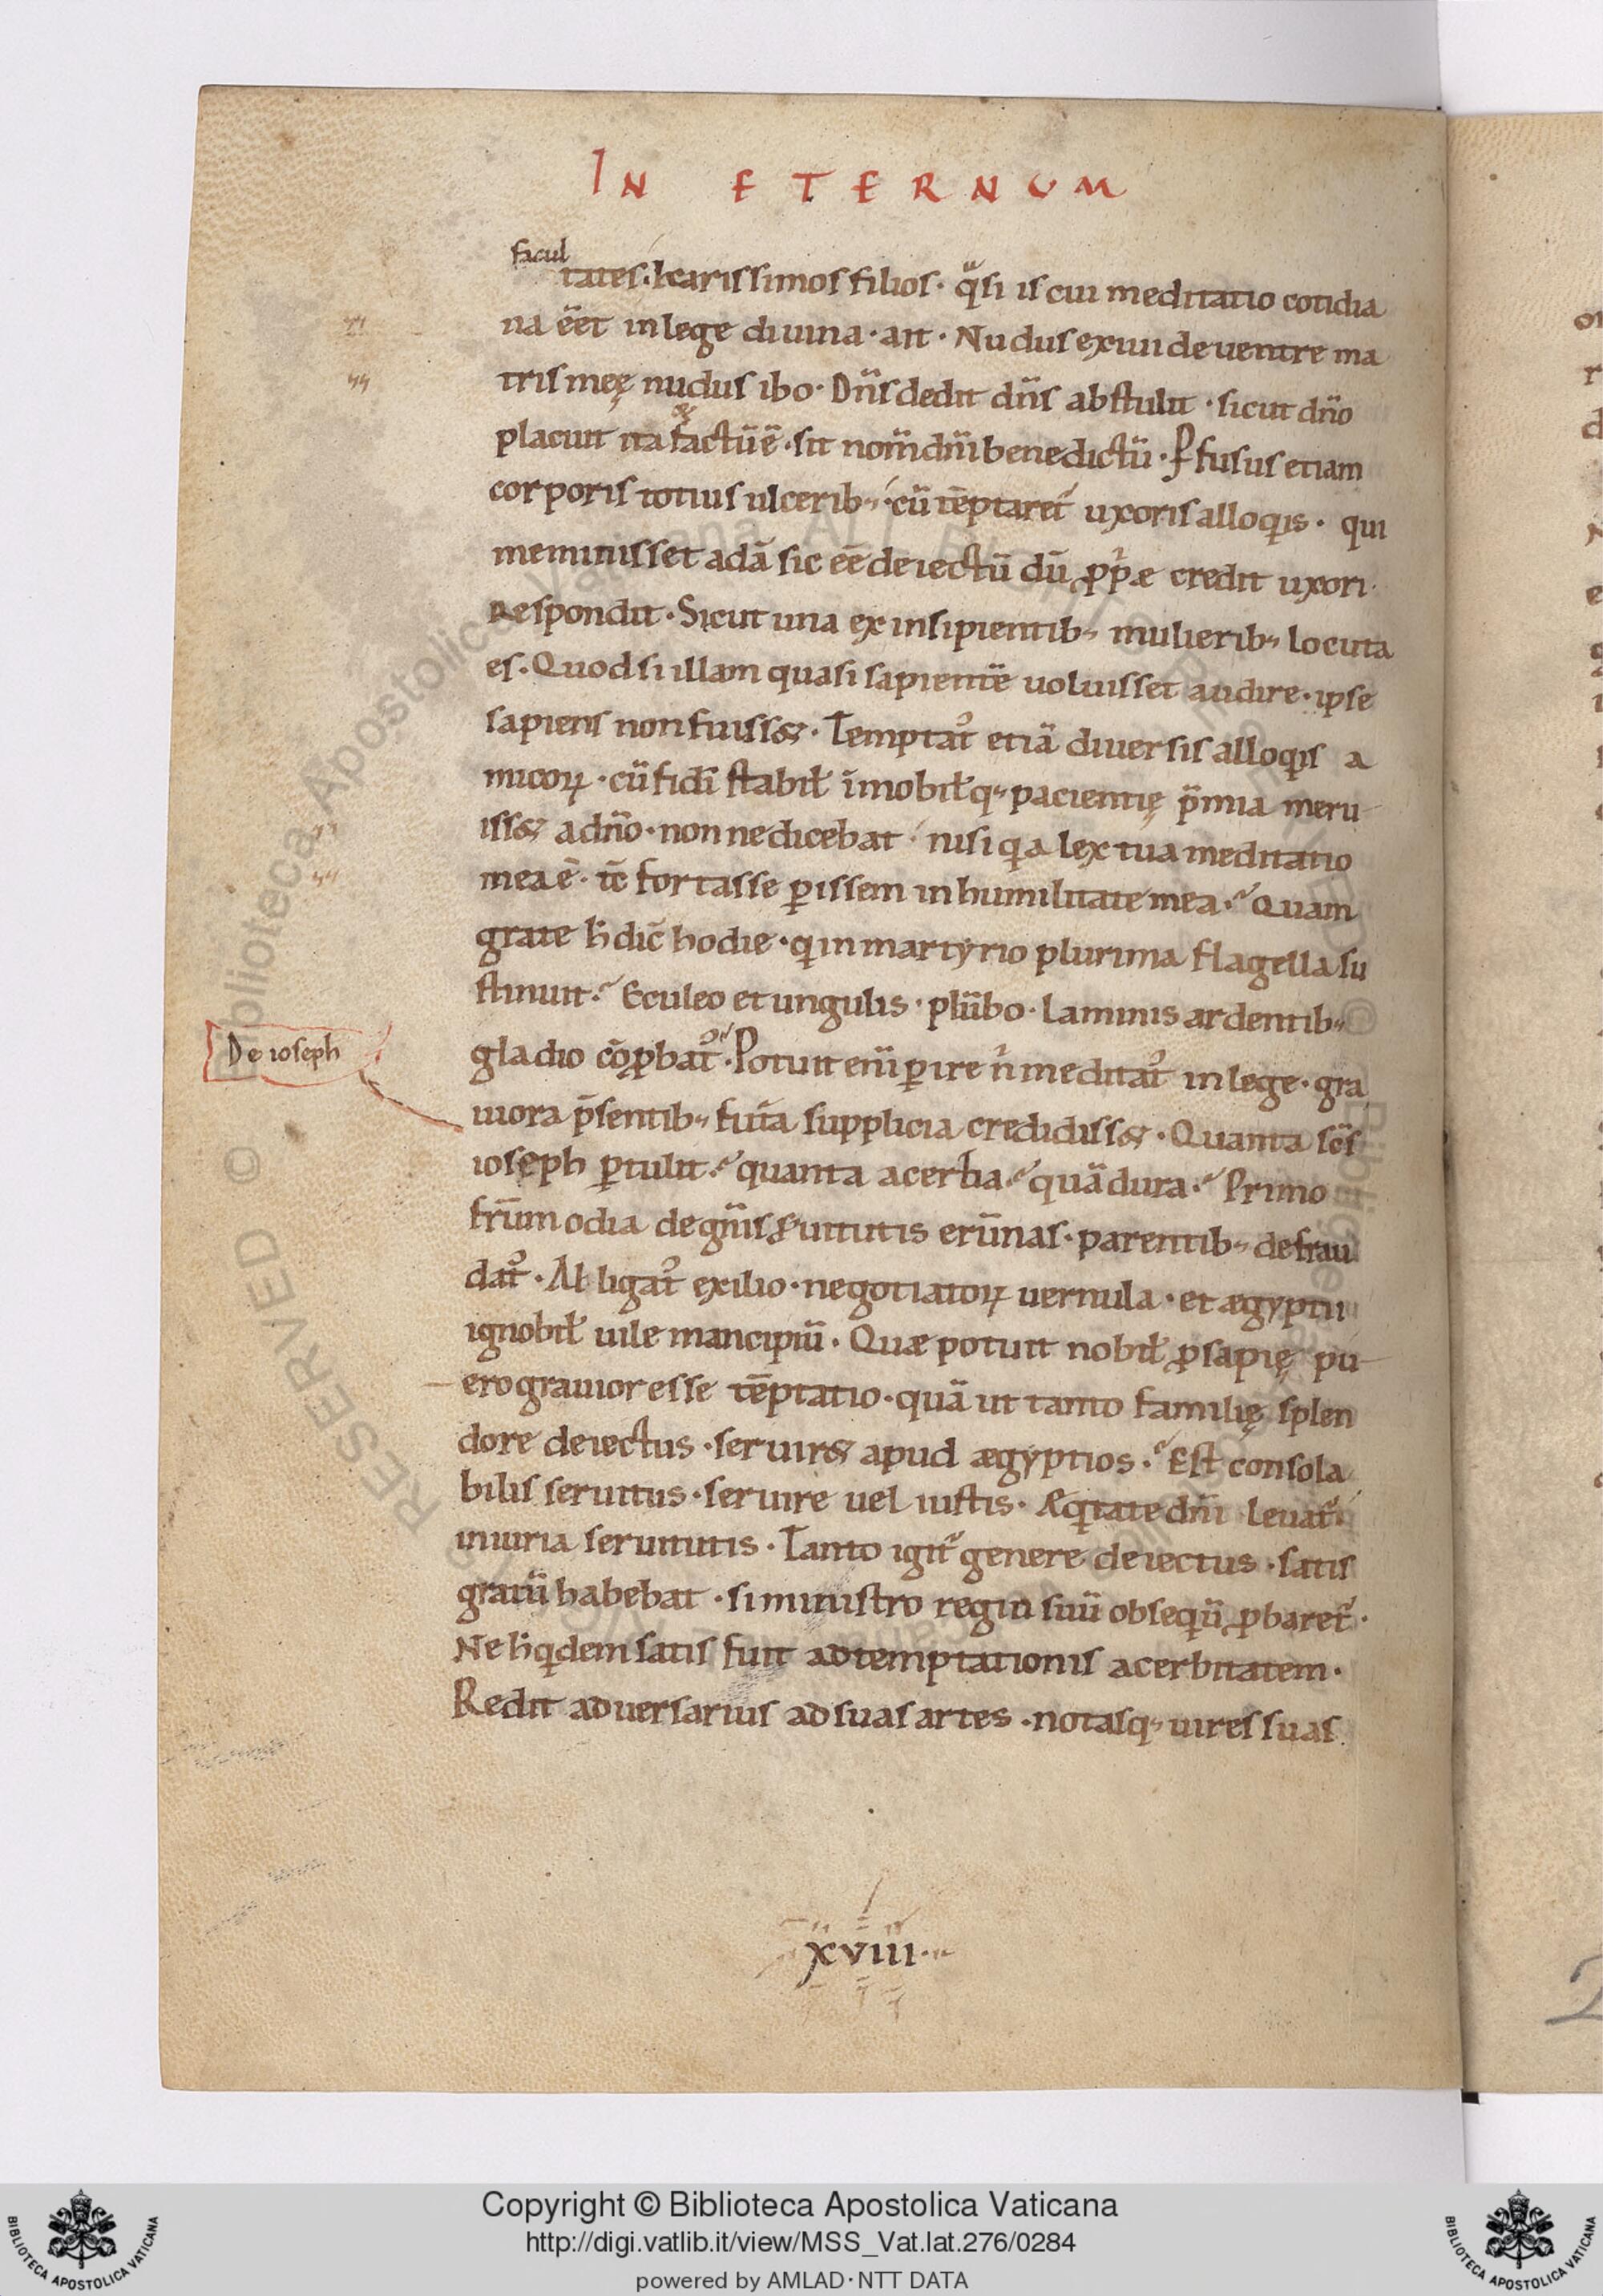 IN ETERNUM
facul
tates. karissimos filios. q̈si is cui meditatio cotidia
na ēet in lege diuina. ait. Nudus exiui de uentre ma
tris meę nudus ibo. Dñs dedit dñs abstulit. sicut dño
placuit ita & factū ē. sit nom̄ dñi benedictū. Pfusus etiam
corporis totius ulcerib; cū tēptaret̄ uxoris alloq̇is. qui
meminisset adā sic eē deiectū dū ꝓp̍æ credit uxori.
Respondit. Sicut una ex insipientib; mulierib; locuta
es. Quod si illam quasi sapientē uoluisset audire. ipse
sapiens non fuiss&. Temptat᷒ etiā diuersis alloq̇is a
micoꝝ. cū fidī stabil̄ īmobil̄q; pacientię p̄mia meru
iss& a dño. nonne dicebat. nisi q̇a lex tua meditatio
mea ē. tc̄ fortasse ꝑissem in humilitate mea. Quam
grate h̄ dic̄ hodie. q̇ in martyrio plurima flagella su
stinuit. Eculeo et ungulis. plūbo. Laminis ardentib;
gladio cōꝓbat᷒. Potuit eni ꝑire n̍ meditat᷒ in lege. gra
De ioseph
uiora p̄sentib; fut̄a supplicia credidiss&. Quanta sc̄s
ioseph ꝑtulit. quanta acerba. quā dura. Primo
fr̄um odia de gn̄is s̵uitutis erūnas. parentib; defrau
dat᷒. Ab ligat᷒ exilio. negotiatoꝝ uernula. et ægyptii
ignobil̄ uile mancipiū. Quæ potuit nobil̄ ꝓsapię pu
ero grauior esse tēptatio. quā ut tanto familię splen
dore deiectus. seruir& apud ægyptios. Est consola
bilis seruitus. seruire uel iustis. Æq̇tate dñi leuat̄
iniuria seruitutis. Tanto igit̄ genere deiectus. satis
gratū habebat. si ministro regin suū obsequiū ꝓbaret̄.
Ne h̄ q̇dem satis fuit ad temptationis acerbitatem.
Redit aduersarius ad suas artes. notasq; uires suas
xviii.
Copyright © Biblioteca Apostolica Vaticana
http://digi.vatlib.it/view/MSS_Vat.lat.276/0284
powered by AMLAD·NTT DATA